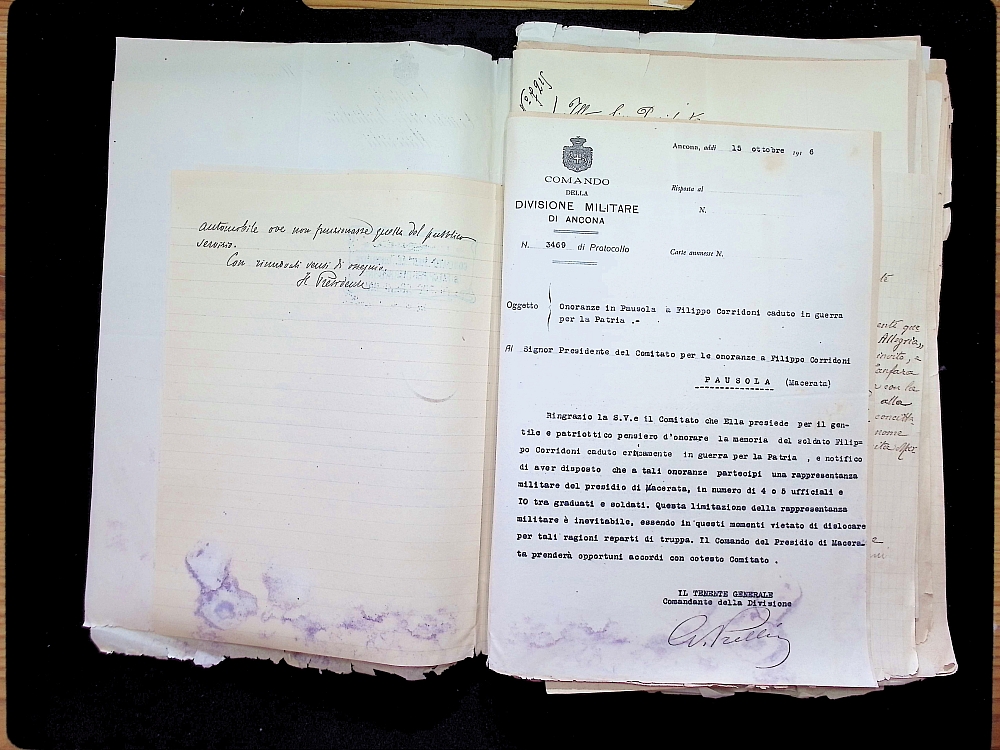 automobile ove non funzionasse quella del pubblico
servizio.
Con rinnovati sensi di ossequio.
Il Presidente
Ancona, addì 15 ottobre 1916
COMANDO
DELLA
DIVISIONE MILITARE
DI ANCONA
N. 3469 di Protocollo
Risposta al
N.
Carte annesse N.
Oggetto
Onoranze in Pausola a Filippo Corridoni caduto in guerra
per la Patria .-
Al Signor Presidente del Comitato per le onoranze a Filippo Corridoni
PAUSOLA (Macerata)
Ringrazio la S.V.e il Comitato che Ella presiede per il gen-
tile e patriottico pensiero d'onorare la memoria del soldato Filip-
po Corridoni caduto eroicamente in guerra per la Patria , e notifico
di aver disposto che a tali onoranze partecipi una rappresentanza
militare del presidio di Macerata, in numero di 4 o 5 ufficiali e
IO tra graduati e soldati. Questa limitazione della rappresentanza
militare è inevitabile, essendo in questi momenti vietato di dislocare
per tali ragioni reparti di truppa. Il Comando del Presidio di Macera-
ta prenderà opportuni accordi con cotesto Comitato .
IL TENENTE GENERALE
Comandante della Divisione
che
Allegria,
invito, e
fanfara
con la
alla
nome